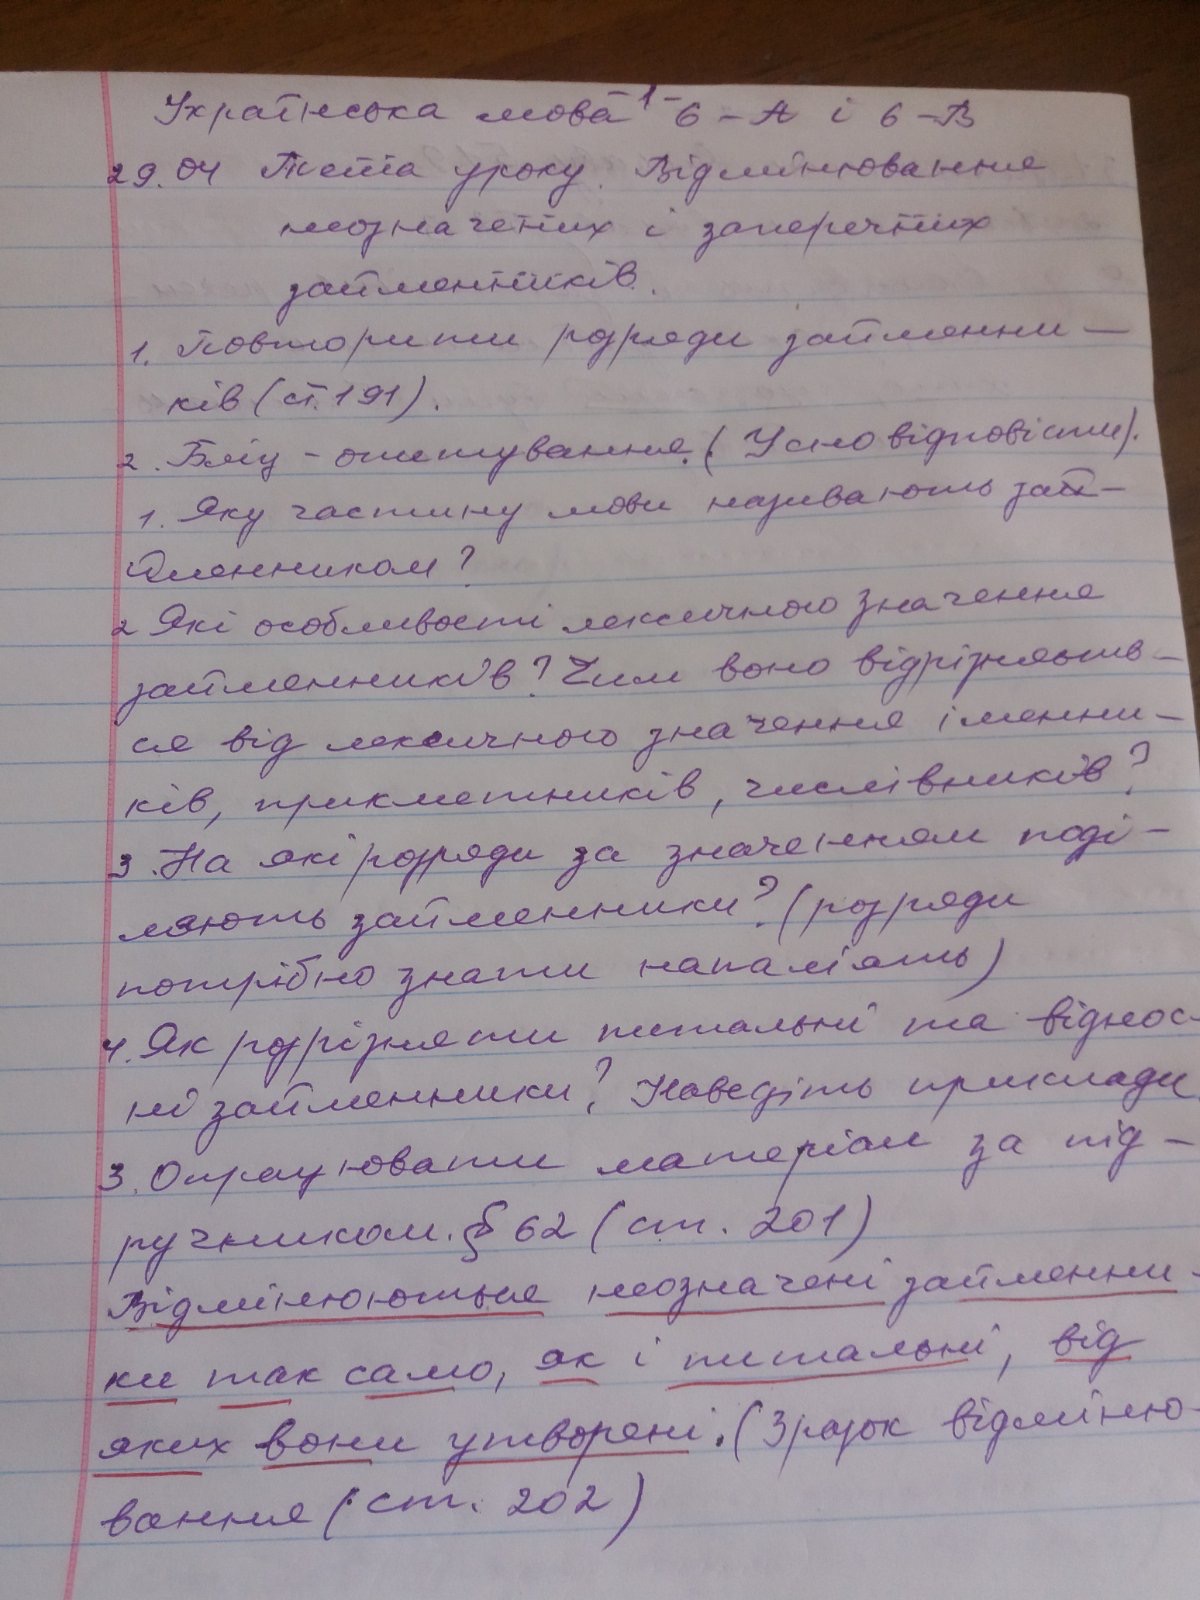 Українська мова -1- 6-А і 6-В
29.04 Тема уроку. Відмінювання
неозначених і заперечних
займенників.
1. Повторити розряди займенни-
ків (ст. 191).
2. Бліц-опитування. (Усно відповісти).
1. Яку частину мови називають зай-
йменником?
2 Які особливості лексичного значення
займенників? Чим воно відрізняєть-
ся від лексичного значення іменни-
ків, прикметників, числівників?
3. На які розряди за значенням поді-
ляють займенники? (розряди
потрібно знати напам'ять)
4. Як розрізняти питальні та віднос-
ні займенники? Наведіть приклади.
3. Опрацювати матеріал за під-
ручником. § 62 (ст. 201)
Відмінюються неозначені займенни-
ки так само, як і питальні, від
яких вони утворені. (Зразок відміню-
вання (ст. 202)